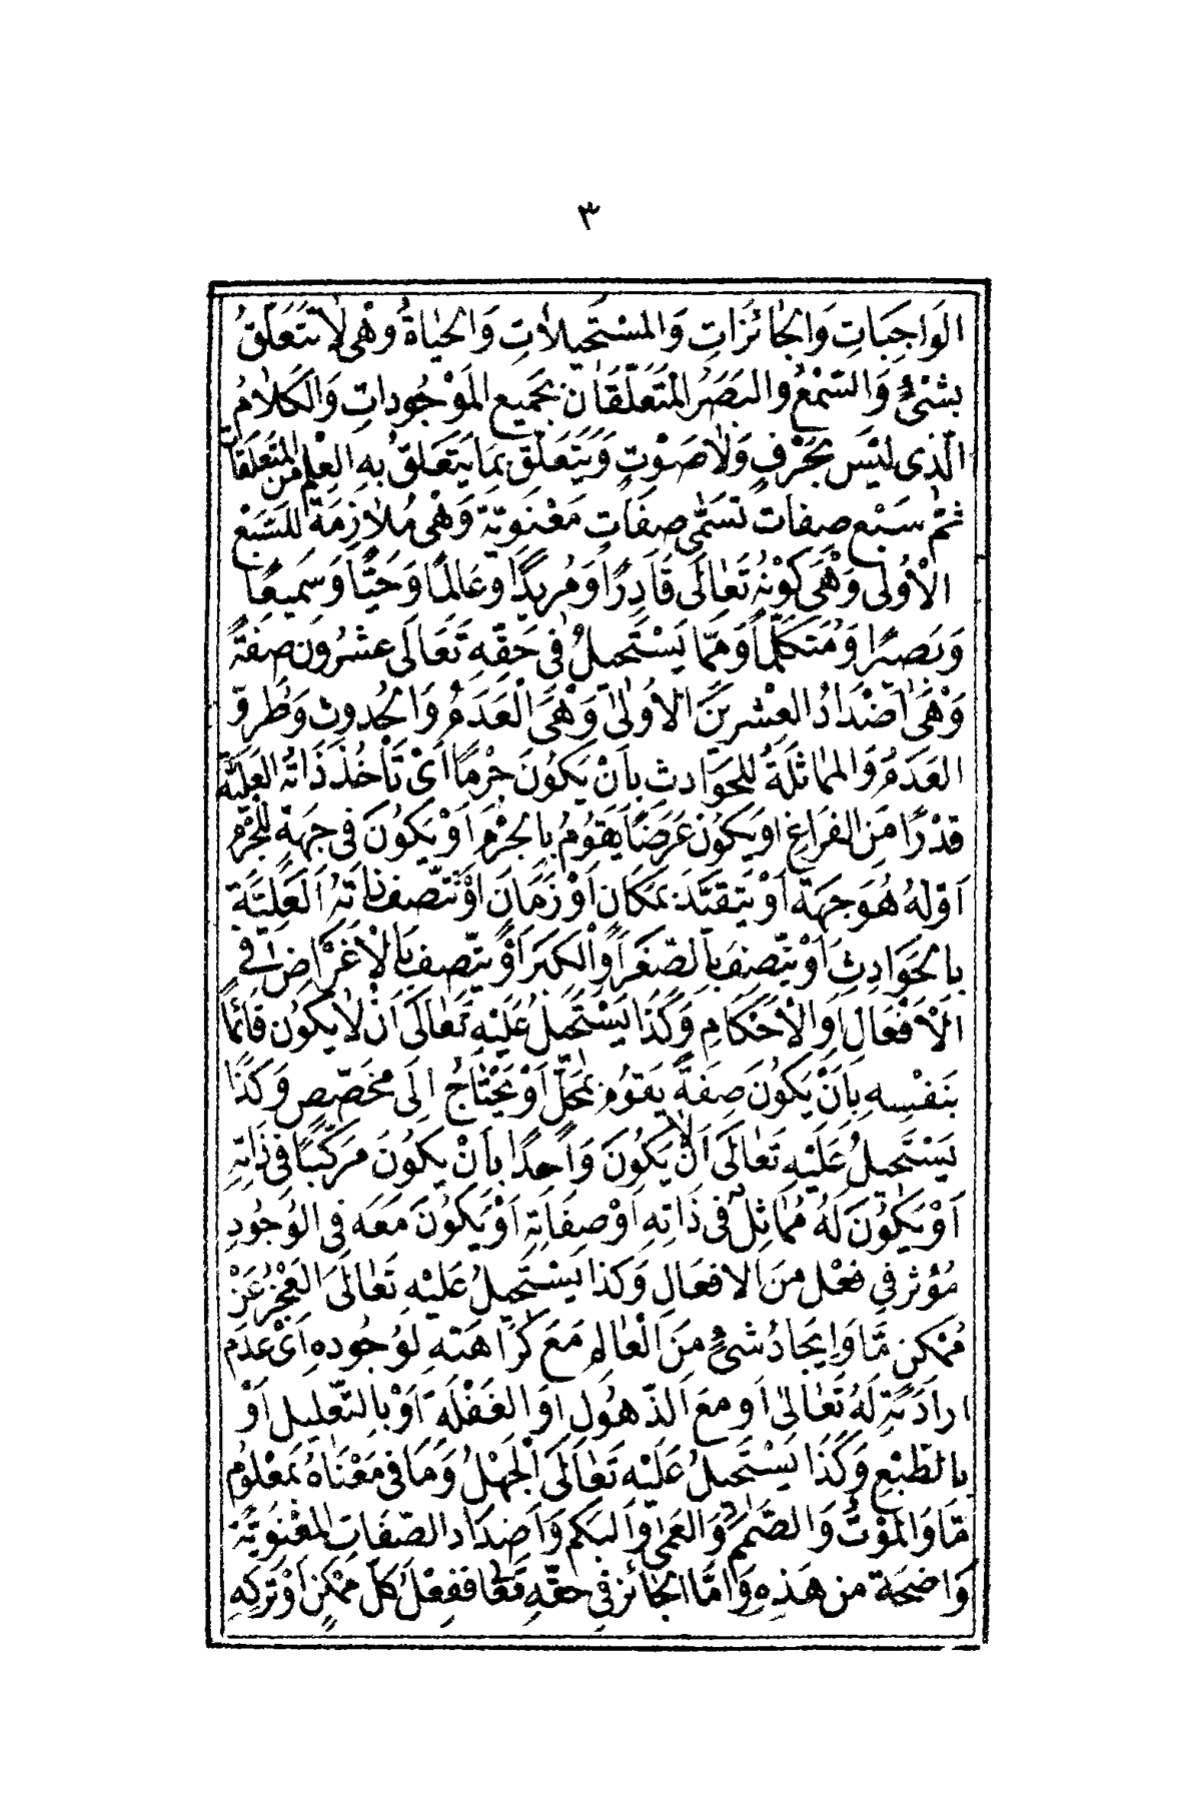 ٣
الوَاجِبَاتِ وَالجَائزَاتِ وَالمسْتَحِيلاَتِ وَالحيَاةُ وَهْىَ لاَ تَتَعَلَّقُ
بِشَىْءٍ وَالسَّمْعُ وَالبَصَرُ المتَعَلِّقَانِ بِجَمِيعِ المَوْجُودَاتِ وَالكَلاَمُ
الَّذِى لَيْسَ بِحَرْفٍ وَلاَ صَوْتٍ وَيَتَعَلَّقُ بِمَا يَتَعَلَّقُ بِهِ العِلْمُ مِنَ المتَعَلَّقَاتِ
ثُمَّ سَبْعُ صِفَاتٍ تُسَمَّى صِفَاتٍ مَعْنَوِيَّةً وَهْىَ مُلاَزِمَةٌ للسَّبْعِ
الْأُولَى وَهْىَ كَوْنُهُ تَعَالَى قَادِرًا وَمُرِيدًا وَعَالِمًا وَحَيًّا وَسَمِيعًا
وَبَصِيرًا وَمُتَكَلِّمًا وَمِمَّا يَسْتَحِيلُ فِى حَقِّهِ تَعَالَى عِشْرُونَ صِفَةً
وَهْىَ أَضْدَادُ العِشْرِينَ الأُولَى وَهْىَ الْعَدَمُ وَالحُدوثُ وَطُرُوُّ
العَدَمِ وَالمُمَاثَلَةُ لِلحَوَادِثِ بِأَنْ يَكُونَ جِرْمًا أَىْ تَأْخُذَ ذَاتُهُ العَلِيَّةُ
قَدْرًا مِنَ الفَرَاغِ أو يَكُونَ عَرَضًا يَقُومُ بِالجِرْمِ أَوْ يَكُونَ فى جِهَةٍ لِلجِرْمِ
أَوْ لَهُ هُوَ جِهَةٌ أَوْ يَتَقَيَّدَ بِمَكَانٍ أَوْ زَمَانٍ أَوْ تَتَّصِفَ ذَاتُهُ العَلِيَّةُ
بِالحَوَادِثِ أَوْ يَتَّصِفَ بِالصِّغَرِ أَوِ الْكِبَرِ أَوْ يَتَّصِفَ بِالْأَغْرَاضِ فِى
الْأَفْعَالِ أَوِ الْأَحْكَامِ وَكَذَا يَسْتَحِيلُ عَلَيْهِ تَعَالَى أَنْ لاَ يَكُونَ قَائمًا
بِنَفْسِهِ بِأَنْ يَكُونَ صِفَةً يَقُومُ بِمَحَلٍّ أَوْ يَحْتَاجُ إِلَى مُخَصِّصٍ وَكَذَا
يَسْتَحِيلُ عَلَيْهِ تَعَالَى أَنْ لاَ يَكُونَ وَاحِدًا بِأَنْ يَكُونَ مُرَكَّبًا فِى ذَاتِهِ
أَوْ يَكُونَ لَهُ مُمَاثِلٌ فِى ذَاتِهِ أَوْ صِفَاتِهِ أَوْ يَكُونَ مَعَه فِى الوُجُودِ
مُؤَثِّرٌ فِى فِعْلٍ مِنَ الأفعَالِ وَكَذا يَسْتَحِيلُ عَلَيْهِ تَعَالَى العَجْزُ عَنْ
مُمْكِنٍ مَّا وَإِيجَادُ شَىْءٍ مِنَ الْعَالَمِ مَعَ كَرَاهَتِهِ لِوُجُودِهِ أَىْ عَدَمِ
إرَادَتِهِ لَهُ تَعَالَى أَو مَعَ الذُّهُولِ أَوِ الغَفْلَةِ أَوْ بِالتَّعْلِيلِ أَوْ
بِالطَّبْعِ وَكَذَا يَسْتَحِيلُ عَلَيْهِ تَعَالَى الْجَهْلُ وَمَا فِى مَعْنَاهُ بِمَعْلُومٍ
مَّا وَالمَوْتُ وَالصَّمَمُ وَالعَمَى وَالبَكَمُ وَأَضْدَادُ الصِّفَاتِ المَعْنَوِيَّةِ
وَاضِحَةٌ مِن هَذِهِ وَأَمَّا الجَائزُ فِى حَقِّهِ تَعَالَى فَفِعْلُ كُلِّ مُمْكِنٍ أَوْ تَرْكُهُ